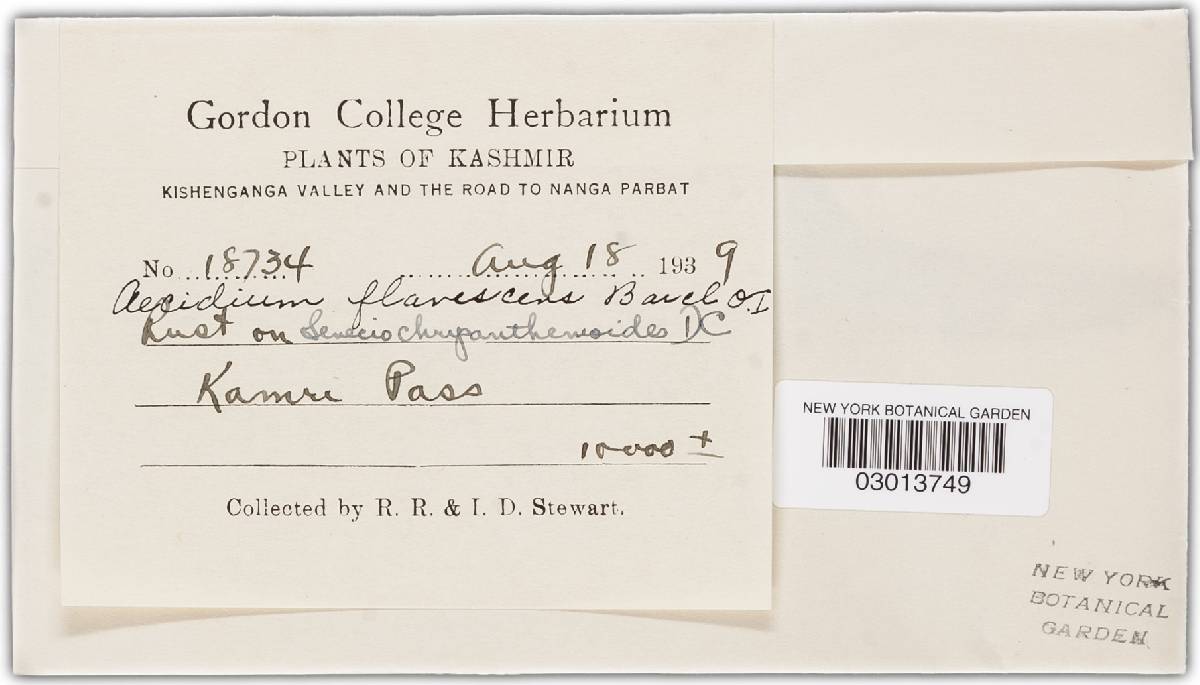 Gordon College Herbarium
PLANTS OF KASHMIR
KISHENGANGA VALLEY AND THE ROAD TO NANGA PARBAT
No 18734 Aug 18 1939
Aecidium flavescens Barcl O.I
Rust on Senecio chrysanthemoides DC
Kamri Pass
10000 ±
Collected by R. R. & I. D. Stewart.
NEW YORK BOTANICAL GARDEN
03013749
NEW YORK
BOTANICAL
GARDEN